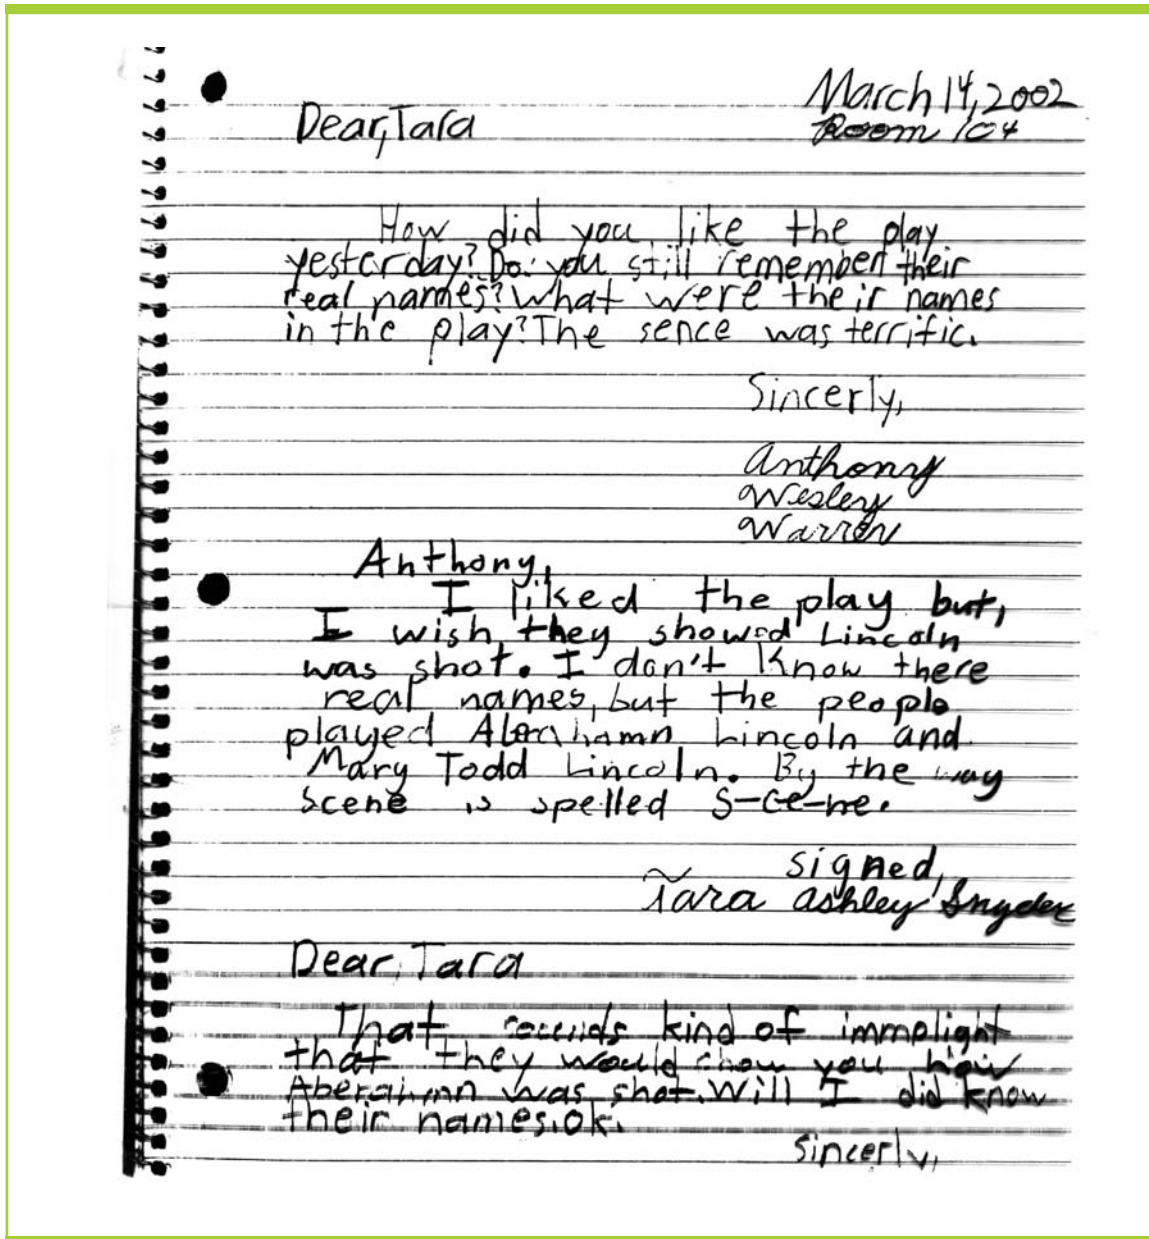 March 14, 2002
Dear, Tara
Room 104
How did you like the play
yesterday? Do you still remember their
real names? What were their names
in the play? The sence was terrific.
Sincerly,
Anthony
Wesley
Warren
Anthony,
I liked the play but,
I wish they showed Lincoln
was shot. I don't know there
real names, but the people
played Abrahamn Lincoln and
Mary Todd Lincoln. By the way
scene is spelled S-ce-ne.
signed,
Tara Ashley Snyder
Dear, Tara
That sounds kind of immplight
that they would show you how
Aberahmn was shot. Will I did know
their names. ok.
sincerly,